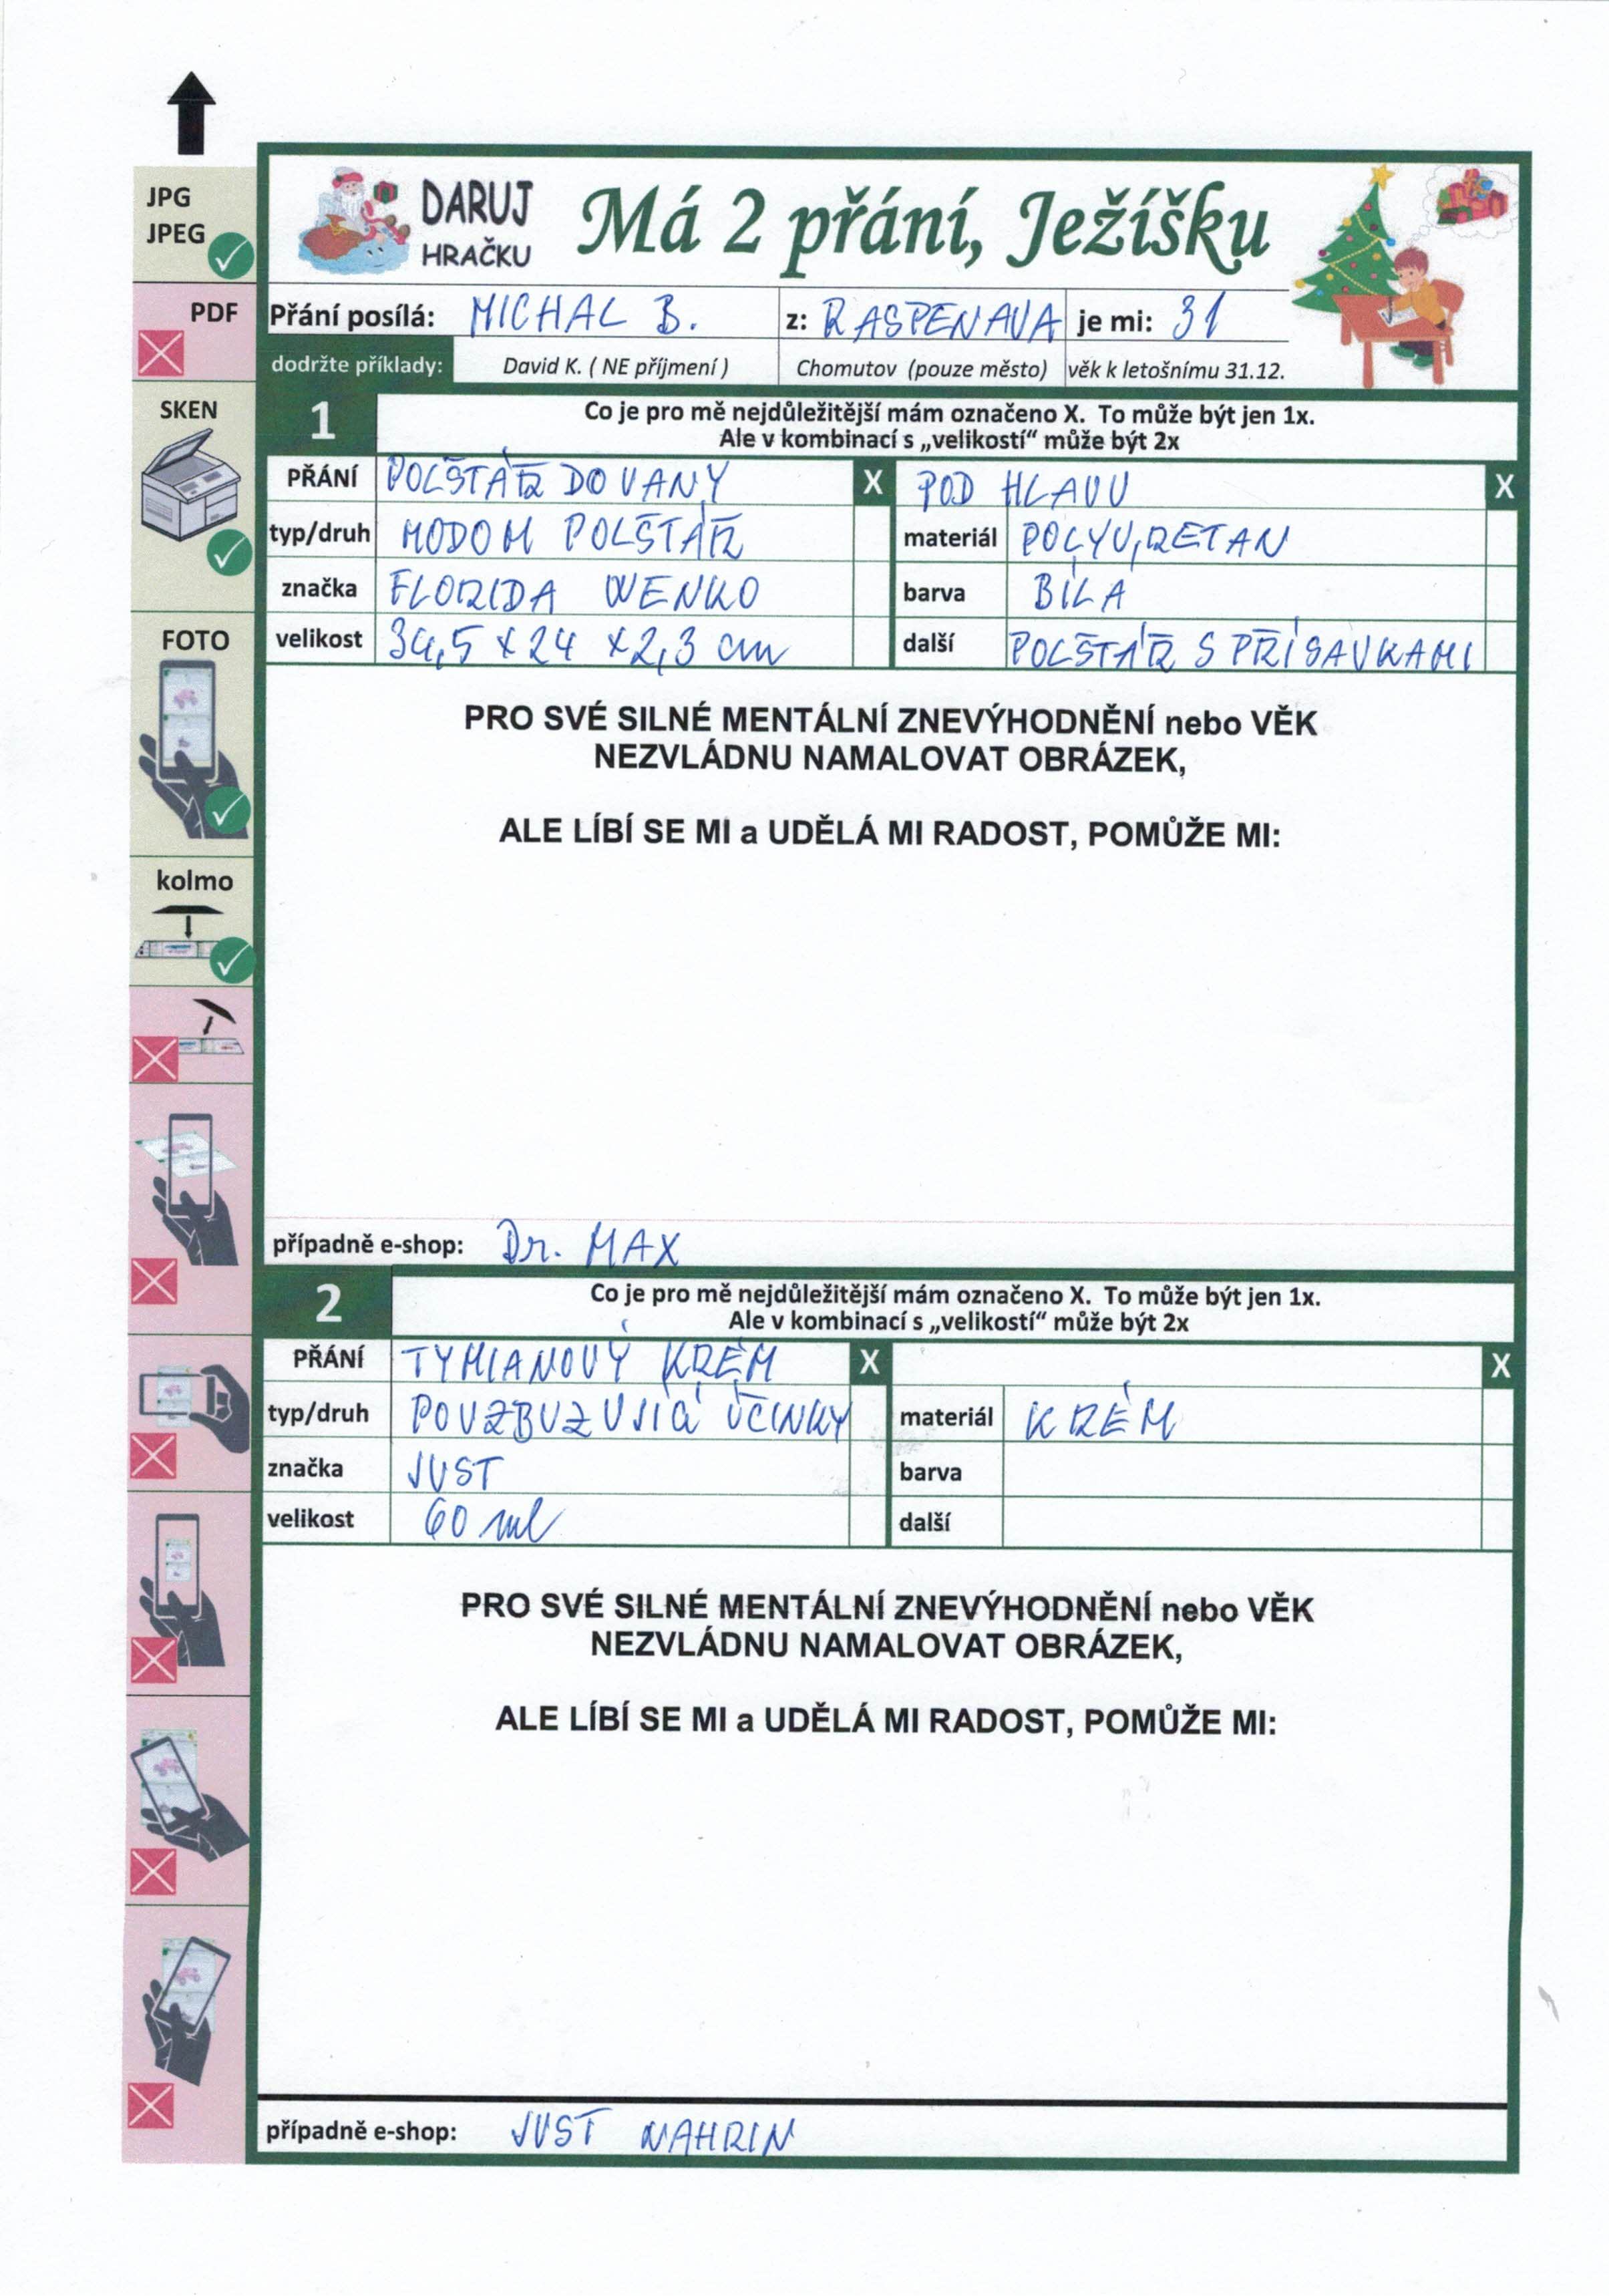 JPG
JPEG
PDF
SKEN
FOTO
kolmo
DARUJ
HRAČKU
Má 2 přání, Ježíšku
Přání posílá: MICHAL B. z: RASPENAVA je mi: 31
dodržte příklady: David K. ( NE příjmení ) Chomutov (pouze město) věk k letošnímu 31.12.
1 Co je pro mě nejdůležitější mám označeno X. To může být jen 1x.
Ale v kombinací s „velikostí“ může být 2x
PŘÁNÍ POLŠTÁŘ DO VANY X POD HLAVU X
typ/druh MODOM POLŠTÁŘ materiál POLYURETAN
značka FLORIDA WENKO barva BÍLÁ
velikost 34,5 x 24 x 2,3 cm další POLŠTÁŘ S PŘÍSAVKAMI
PRO SVÉ SILNÉ MENTÁLNÍ ZNEVÝHODNĚNÍ nebo VĚK
NEZVLÁDNU NAMALOVAT OBRÁZEK,
ALE LÍBÍ SE MI a UDĚLÁ MI RADOST, POMŮŽE MI:
případně e-shop: Dr. MAX
2 Co je pro mě nejdůležitější mám označeno X. To může být jen 1x.
Ale v kombinací s „velikostí“ může být 2x
PŘÁNÍ TYMIANOVÝ KRÉM X X
typ/druh POVZBUZUJÍCÍ ÚČINKY materiál KRÉM
značka JUST barva
velikost 60 ml další
PRO SVÉ SILNÉ MENTÁLNÍ ZNEVÝHODNĚNÍ nebo VĚK
NEZVLÁDNU NAMALOVAT OBRÁZEK,
ALE LÍBÍ SE MI a UDĚLÁ MI RADOST, POMŮŽE MI:
případně e-shop: JUST NAHRIN